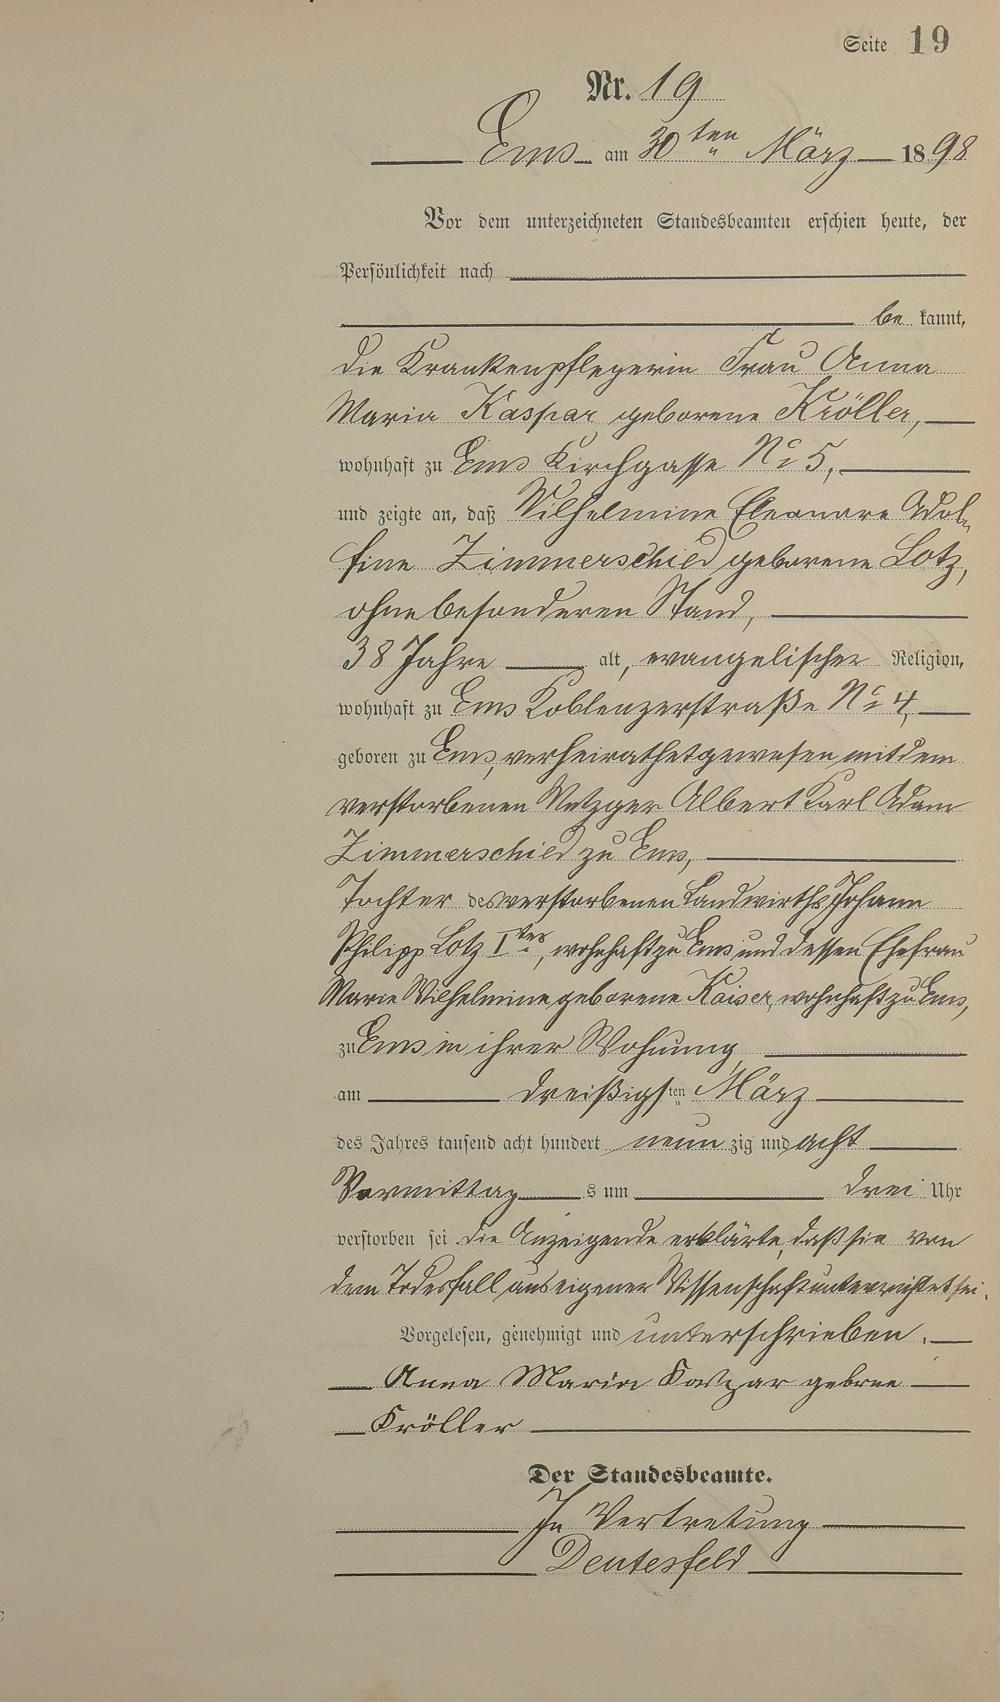 Seite 19
Nr. 19
Ems am 30ten März 1898
Vor dem unterzeichneten Standesbeamten erschien heute, der
Persönlichkeit nach
be kannt,
die Krankenpflegerin Frau Anna
Maria Kaspar geborene Kröller,
wohnhaft zu Ems Kirchgasse No 5,
und zeigte an, daß Wilhelmine Eleonore Adol-
fine Zimmerschied geborene Lotz,
ohne besonderen Stand,
38 Jahre alt, evangelischer Religion,
wohnhaft zu Ems Koblenzerstraße No 4,
geboren zu Ems, verheirathet gewesen mit dem
verstorbenen Metzger Albert Karl Adam
Zimmerschied zu Ems,
Tochter des verstorbenen Landwirths Johann
Philipp Lotz Iter, wohnhaft zu Ems und dessen Ehefrau
Marie Wilhelmine geborene Kaiser, wohnhaft zu Ems,
zu Ems in ihrer Wohnung,
am dreißigsten März
des Jahres tausend acht hundert neun zig und acht
Vormittag s um drei Uhr
verstorben sei die Anzeigende erklärte, daß sie von
dem Todesfall aus eigener Wissenschaft unterrichtet sei.
Vorgelesen, genehmigt und unterschrieben.
Anna Maria Kaspar gebrne
Kröller
Der Standesbeamte.
In Vertretung
Deutesfeld